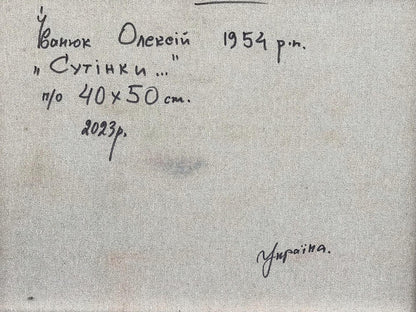 Іванюк Олексій 1954 р.н.
„Сутінки..."
п/о 40х50 ст.
2023р.
Україна.